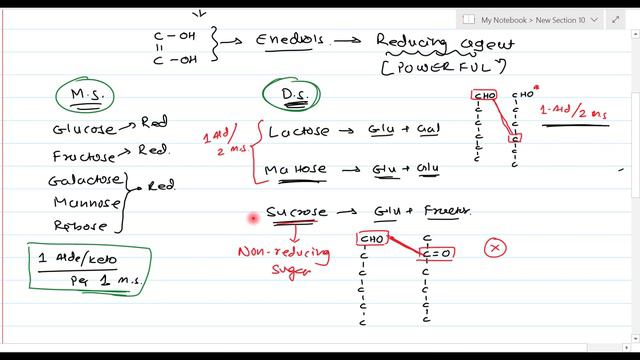 My Notebook > New Section 10
C - OH
||
C - OH
→ Enediols → Reducing agent
(POWERFUL)
M.S.
Glucose → Red
Fructose → Red.
Galactose
Mannose
Ribose
Red.
1 Alde/keto
per 1 m.s.
D.S.
1 Ald/
2 m.s.
Lactose → Glu + Gal
Maltose → Glu + Glu
Sucrose → Glu + Fructos.
Non-reducing
sugar
CHO
C
C
C
C
C
CHO*
C
C
C
C
C
1-Ald/2 m.s
CHO
C
C
C
C
C
C
C=O
C
C
C
C
X